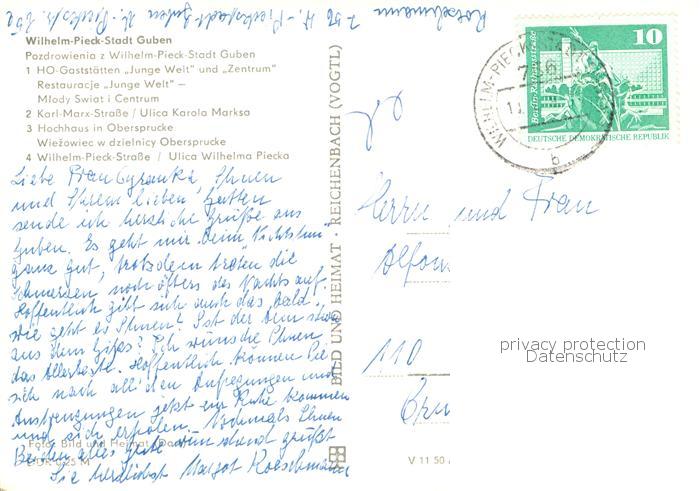 Wilhelm-Pieck-Stadt Guben
Pozdrowienia z Wilhelm-Pieck-Stadt Guben
1 HO-Gaststätten „Junge Welt" und „Zentrum"
Restauracje „Junge Welt" –
Młody Swiat i Centrum
2 Karl-Marx-Straße / Ulica Karola Marksa
3 Hochhaus in Obersprucke
Wieżowiec w dzielnicy Obersprucke
4 Wilhelm-Pieck-Straße / Ulica Wilhelma Piecka
Liebe Frau Cyranka, Ihnen
und Ihrem lieben Gatten
sende ich herzliche Grüße aus
Guben. Es geht mir beim
ganz gut, trotzdem treten die
Schmerzen noch öfters des Nachts auf.
Hoffentlich gibt sich auch das bald.
Wie geht es Ihnen? Ist der Arm schon
aus dem Gips? Ich wünsche Ihnen
das Allerbeste. Hoffentlich können Sie
sich nach all den Aufregungen und
Anstrengungen jetzt zur Ruhe kommen
und sich erholen. Nochmals Ihnen
Beiden alles Gute und grüßt
Sie herzlichst Margot
Foto: Bild und Heimat
DDR 0,25 M
BILD UND HEIMAT · REICHENBACH (VOGTL)
V 11 50
Berlin-Rathausstraße
10
DEUTSCHE DEMOKRATISCHE REPUBLIK
WILHELM-PIECK-STADT
b
Herrn und Frau
Alfons
110
privacy protection
Datenschutz